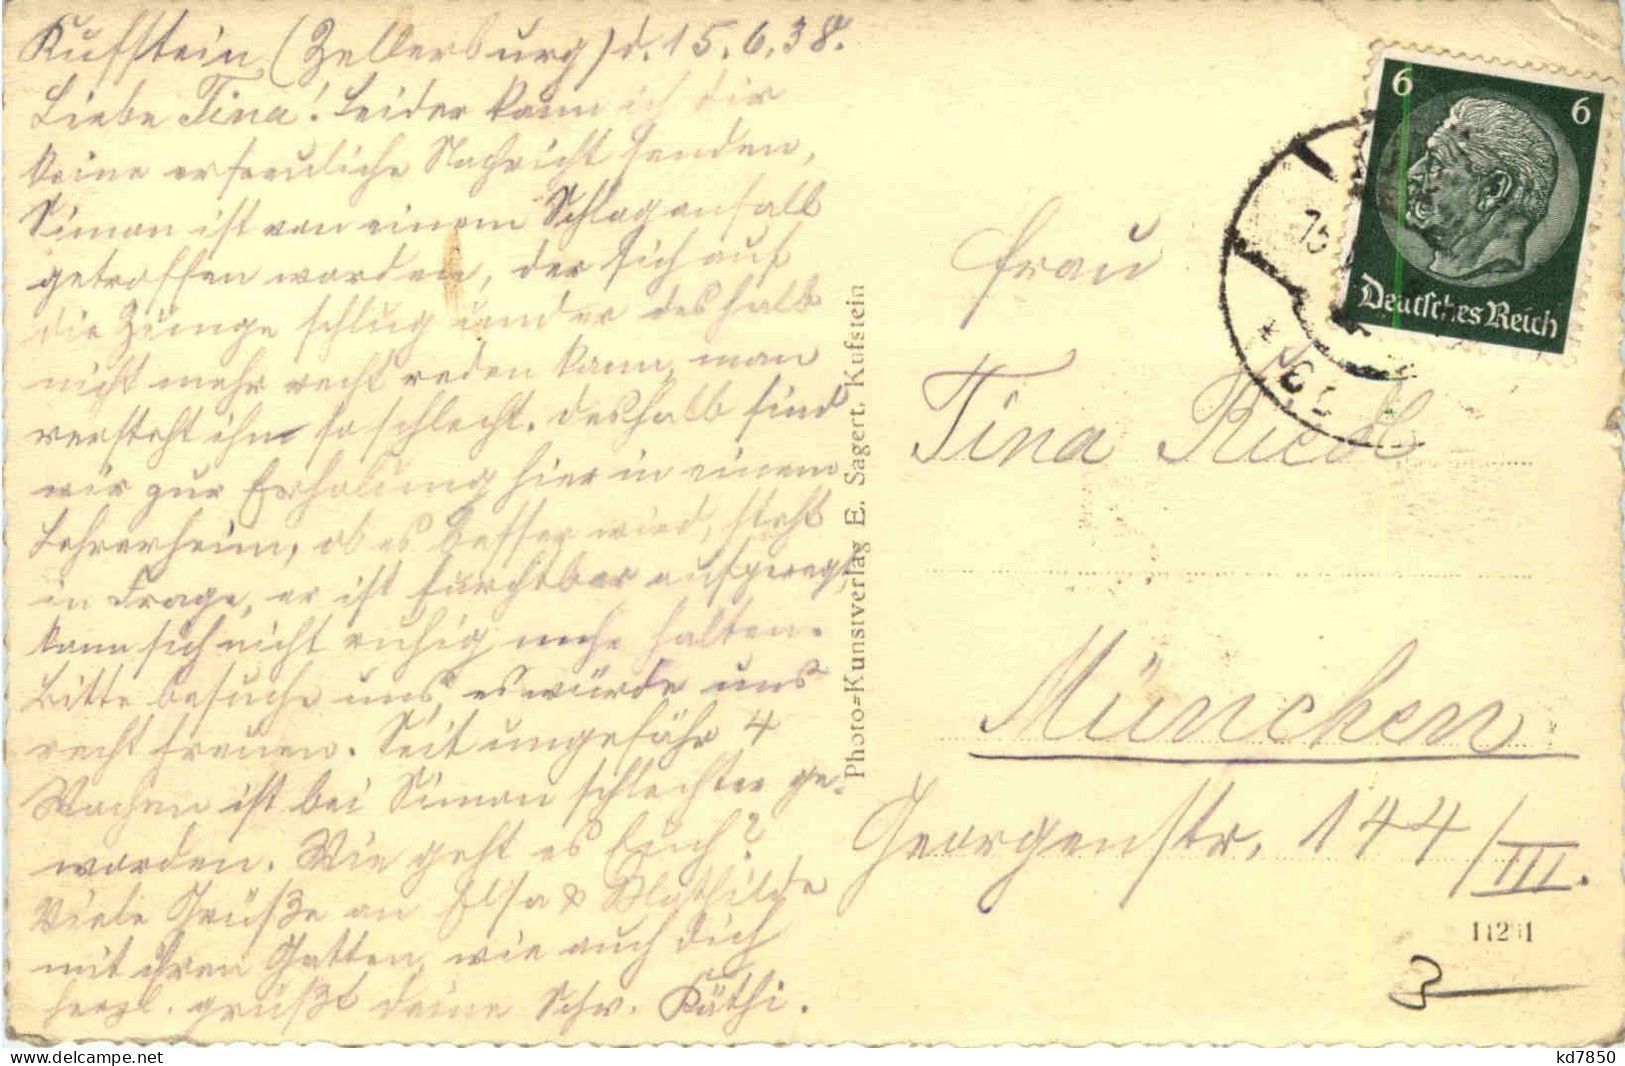 Kufstein (Zellerburg) d. 15.6.38.
Liebe Tina! Leider kann ich dir
keine erfreuliche Nachricht senden,
Simon ist von einem Schlaganfall
getroffen worden, der sich auf
die Zunge schlug und er deshalb
nicht mehr recht reden kann, man
versteht ihn so schlecht. Deshalb sind
wir zur Erholung hier in einem
Lehrerheim, ob es besser wird, steht
in Frage, er ist furchtbar aufgeregt,
kann sich nicht ruhig mehr halten.
Bitte besuche uns, es würde uns
recht freuen. Seit ungefähr 4
Wochen ist bei Simon schlechter ge-
worden. Wie geht es Euch?
Viele Grüße an Elsa & Mathilde
mit ihren Gatten, wie auch dich
herzl. grüßt deine Schw. Käthi.
Photo=Kunstverlag E. Sagert. Kufstein
6 6
Deutsches Reich
Frau
Tina Riedl
München
Georgenstr. 144/III.
3
kd7850
www.delcampe.net